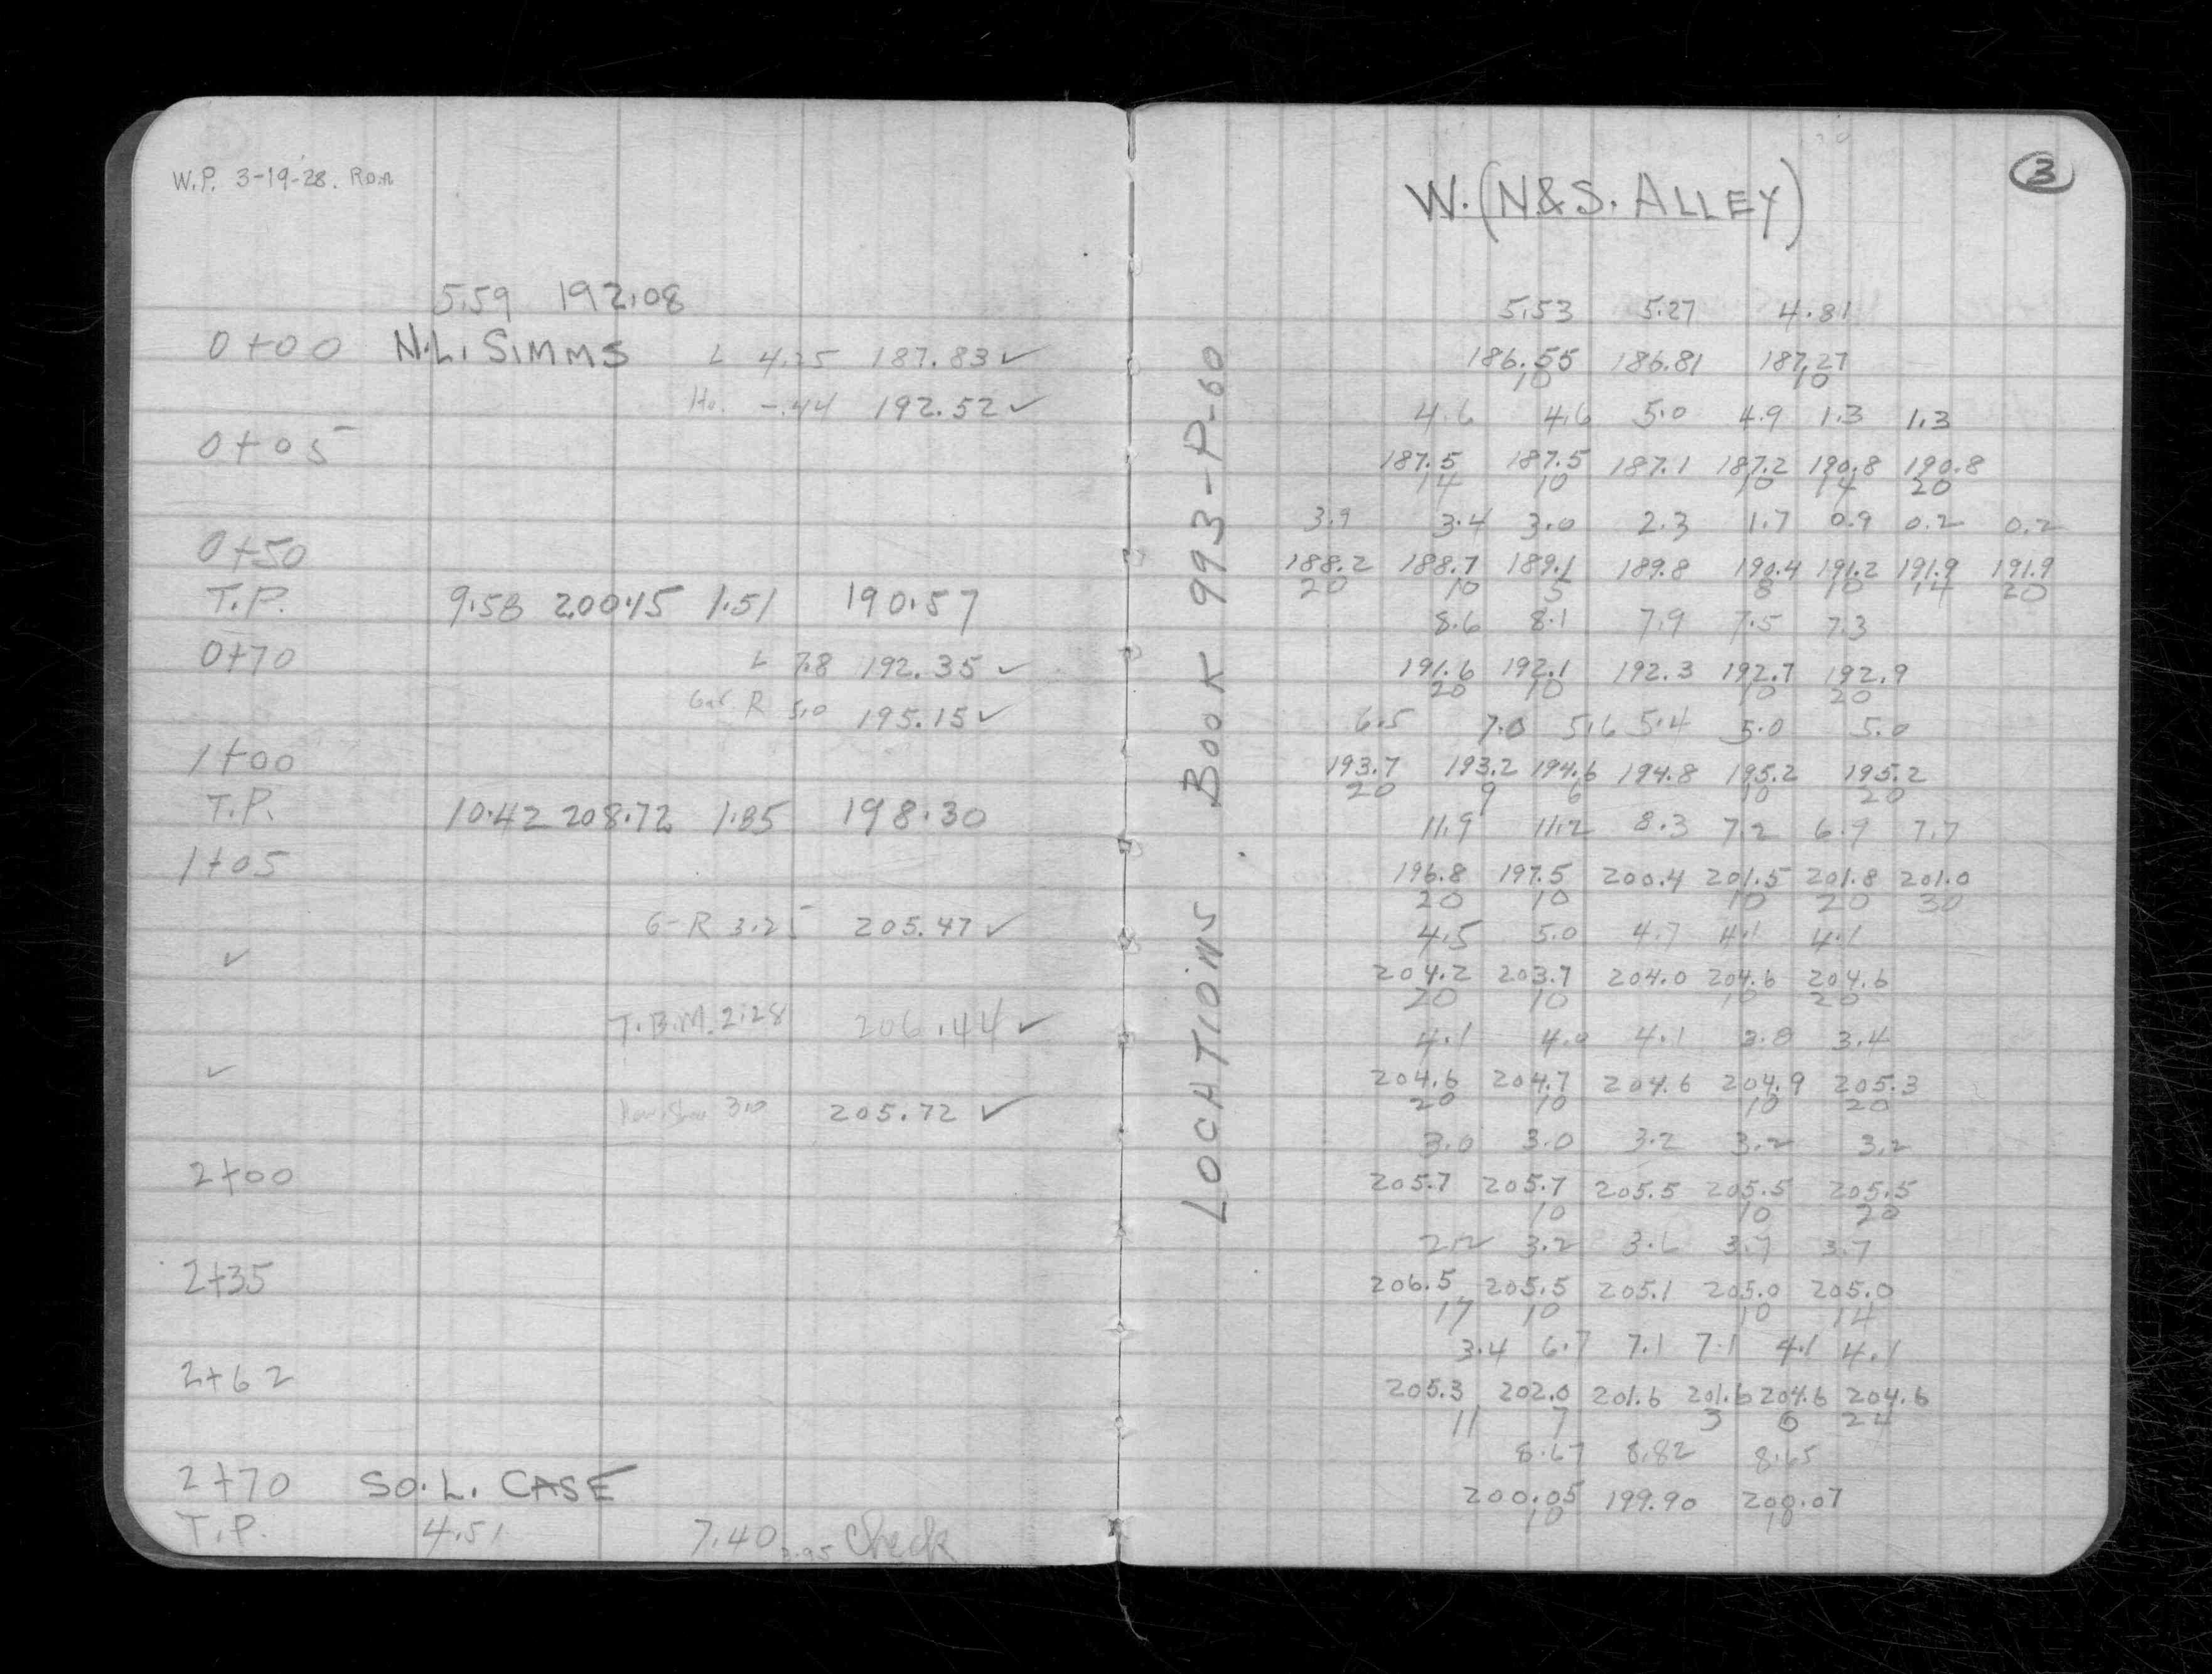 W.P. 3-19-28. Ron
5.59 192.08
0+00 N.L. SIMMS L 4.25 187.83 ✓
Ho. -.44 192.52 ✓
0+05
0+50
T.P. 9.58 200.15 1.51 190.57
0+70 L 7.8 192.35 ✓
Gar R 5.0 195.15 ✓
1+00
T.P. 10.42 208.72 1.85 198.30
1+05
G-R 3.25 205.47 ✓
✓
T.B.M. 2.28 206.44 ✓
✓
3.0 205.72 ✓
2+00
2+35
2+62
2+70 SO. L. CASE
T.P. 4.51 7.40 check
3
W. (N&S. ALLEY)
LOCATIONS BOOK 993-P-60
5.53 5.27 4.81
186.55 186.81 187.27
10 10
4.6 4.6 5.0 4.9 1.3 1.3
187.5 187.5 187.1 187.2 190.8 190.8
14 10 10 14 20
3.9 3.4 3.0 2.3 1.7 0.9 0.2 0.2
188.2 188.7 189.1 189.8 190.4 191.2 191.9 191.9
20 10 5 8 10 14 20
8.6 8.1 7.9 7.5 7.3
191.6 192.1 192.3 192.7 192.9
20 10 10 20
6.5 7.0 5.6 5.4 5.0 5.0
193.7 193.2 194.6 194.8 195.2 195.2
20 9 6 10 20
11.9 11.2 8.3 7.2 6.9 7.7
196.8 197.5 200.4 201.5 201.8 201.0
20 10 10 20 30
4.5 5.0 4.7 4.1 4.1
204.2 203.7 204.0 204.6 204.6
20 10 10 20
4.1 4.0 4.1 3.8 3.4
204.6 204.7 204.6 204.9 205.3
20 10 10 20
3.0 3.0 3.2 3.2 3.2
205.7 205.7 205.5 205.5 205.5
10 10 20
2.2 3.2 3.6 3.7 3.7
206.5 205.5 205.1 205.0 205.0
17 10 10 14
3.4 6.7 7.1 7.1 4.1 4.1
205.3 202.0 201.6 201.6 204.6 204.6
11 7 3 6 24
8.67 8.82 8.65
200.05 199.90 200.07
10 10